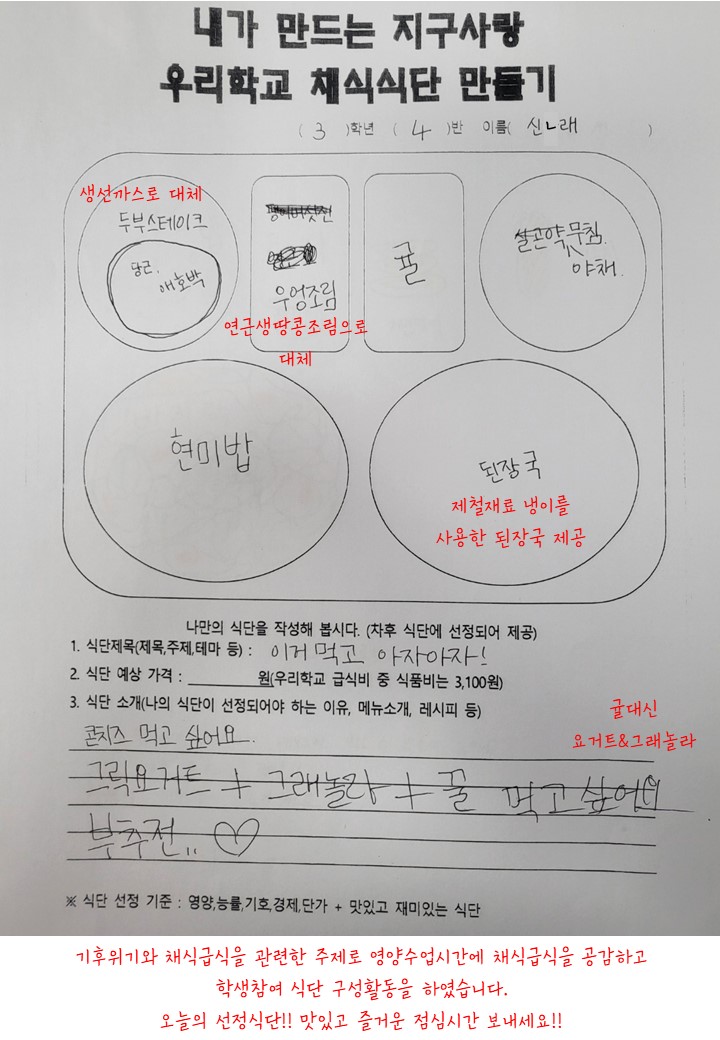 내가 만드는 지구사랑
우리학교 채식식단 만들기
( 3 )학년 ( 4 )반 이름( 신나래 )
생선까스로 대체
두부스테이크
당근,
애호박
팽이버섯전
우엉조림
연근생땅콩조림으로
대체
귤
실곤약 무침.
야채.
현미밥
된장국
제철재료 냉이를
사용한 된장국 제공
나만의 식단을 작성해 봅시다. (차후 식단에 선정되어 제공)
1. 식단제목(제목,주제,테마 등) : 이거 먹고 아자아자!
2. 식단 예상 가격 : ________원(우리학교 급식비 중 식품비는 3,100원)
3. 식단 소개(나의 식단이 선정되어야 하는 이유, 메뉴소개, 레시피 등)
귤대신
요거트&그래놀라
콘치즈 먹고 싶어요.
그릭요거트 + 그래놀라 + 꿀 먹고싶어요
부추전.. ♡
※ 식단 선정 기준 : 영양,능률,기호,경제,단가 + 맛있고 재미있는 식단
기후위기와 채식급식을 관련한 주제로 영양수업시간에 채식급식을 공감하고
학생참여 식단 구성활동을 하였습니다.
오늘의 선정식단!! 맛있고 즐거운 점심시간 보내세요!!